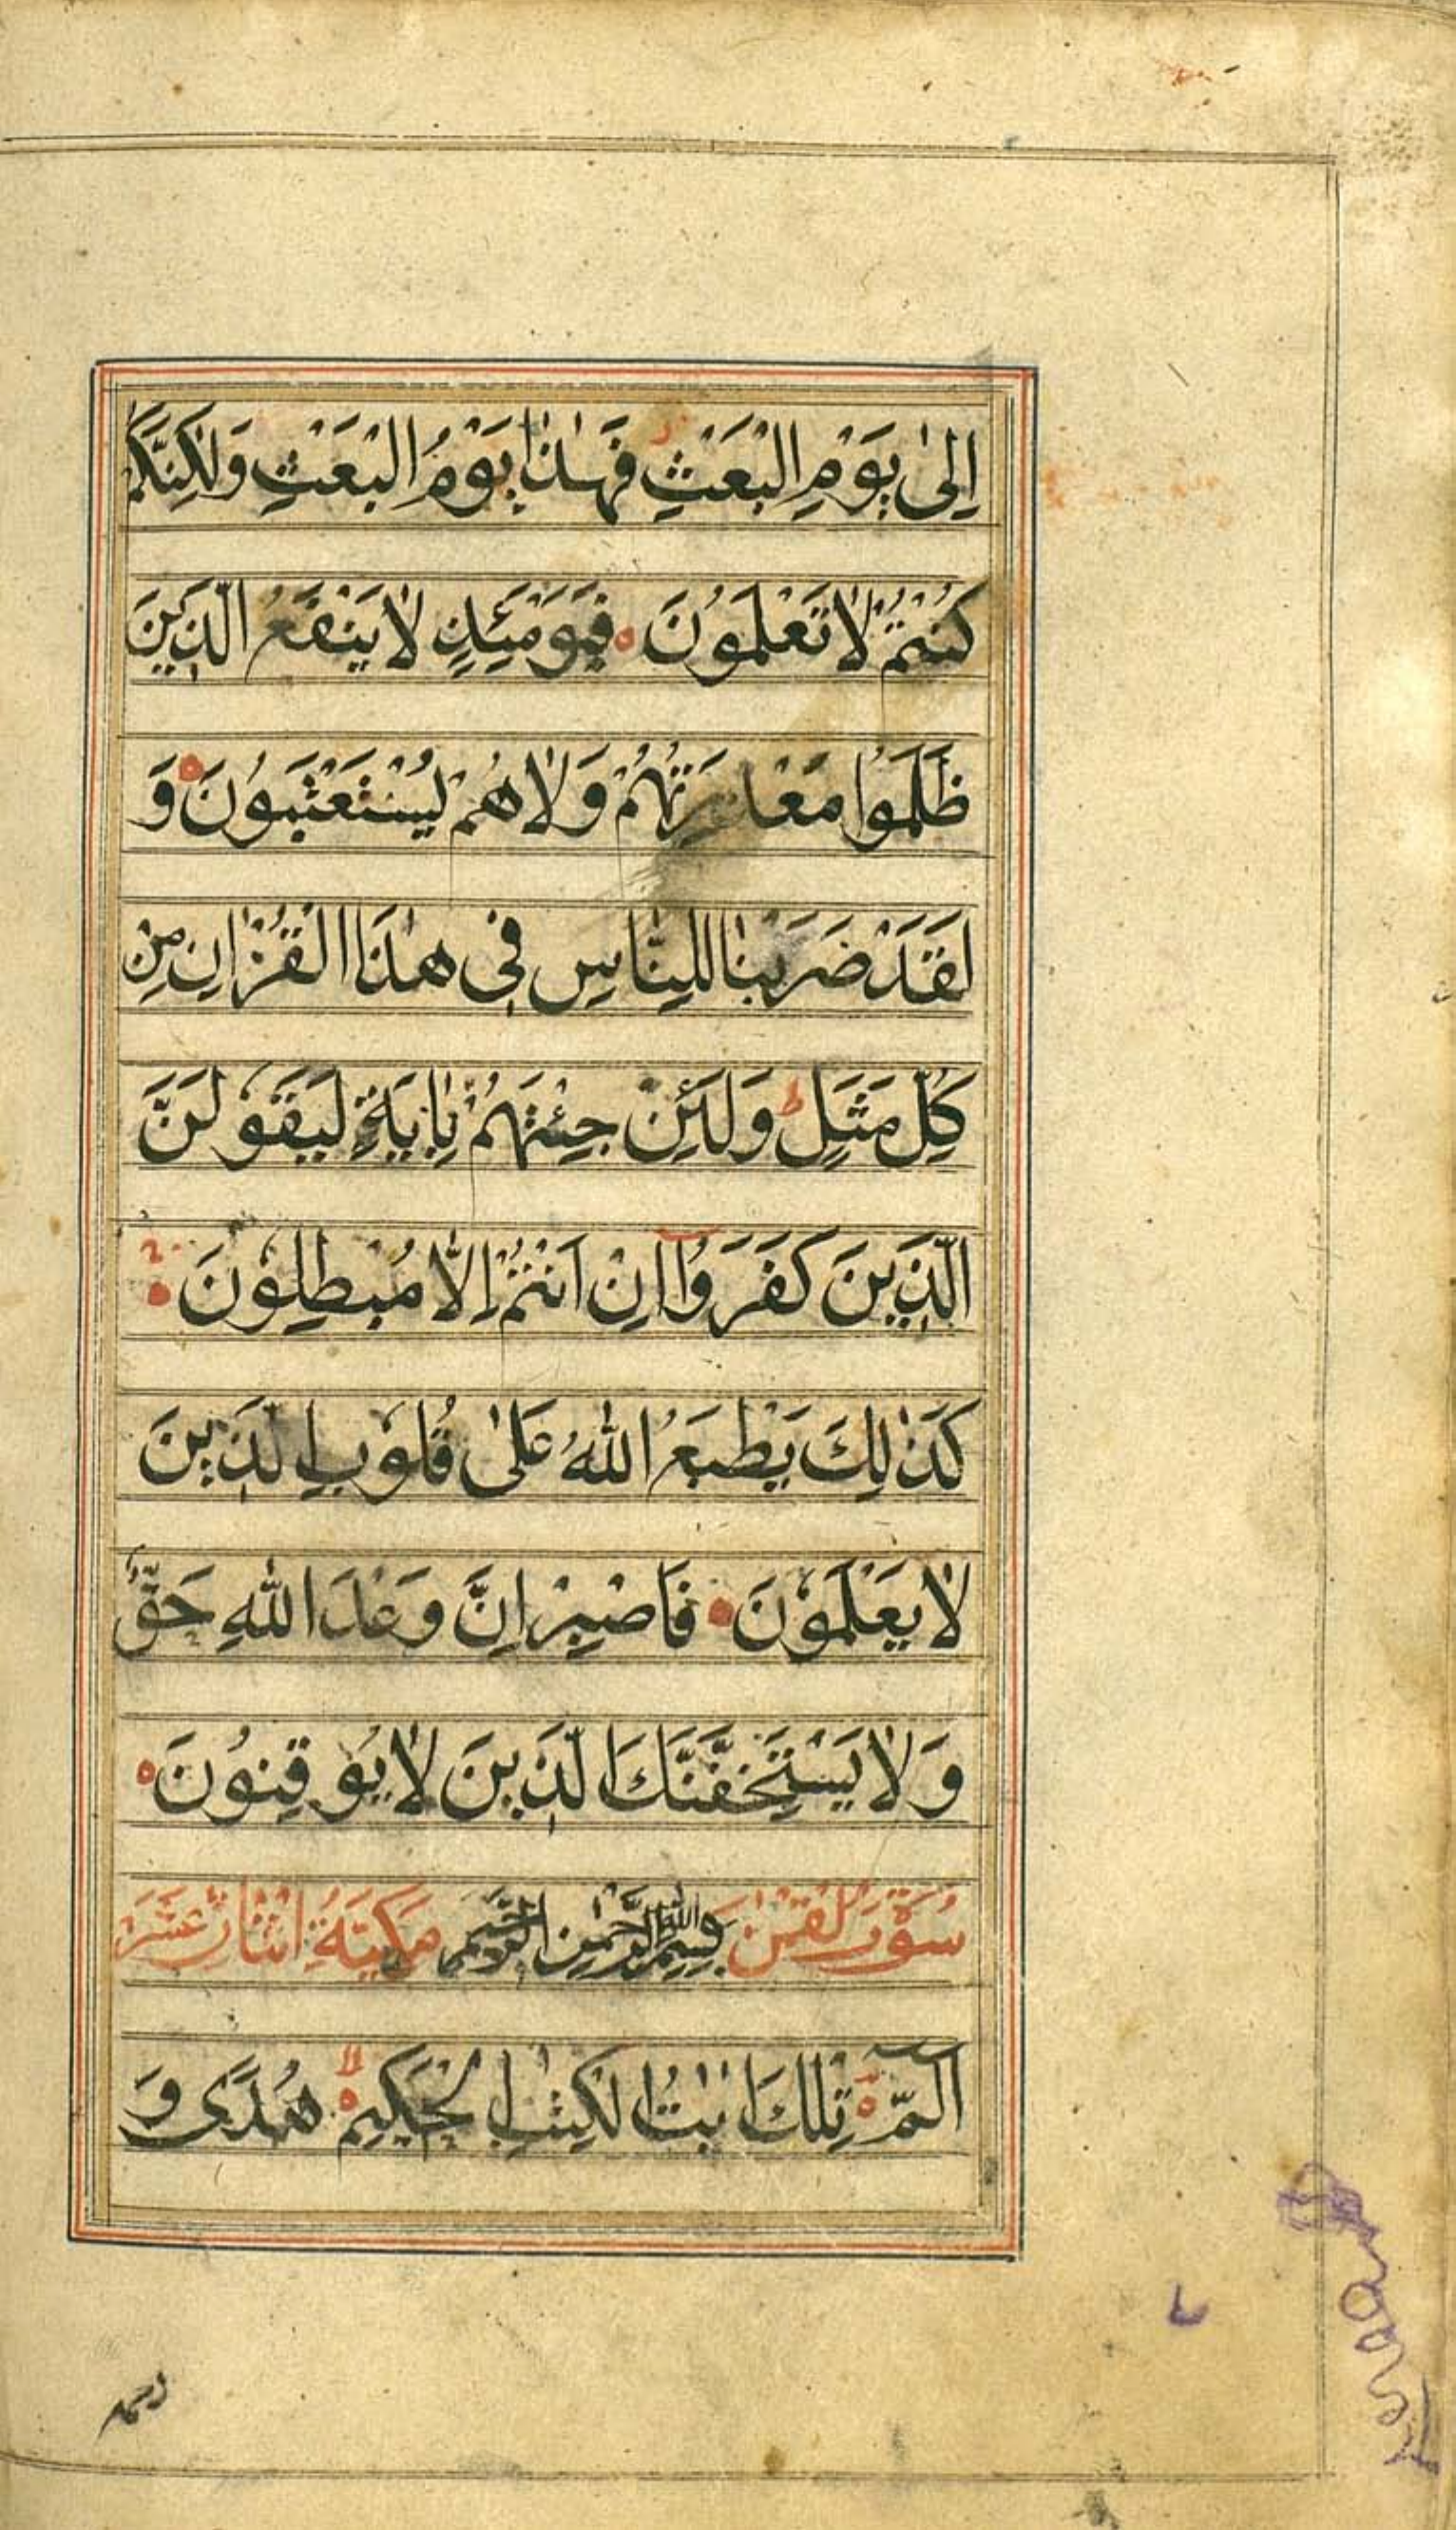 اِلٰى يَوْمِ الْبَعْثِ فَهٰذَا يَوْمُ الْبَعْثِ وَلٰكِنَّكُمْ
كُنْتُمْ لَا تَعْلَمُوْنَ فَيَوْمَئِذٍ لَا يَنْفَعُ الَّذِيْنَ
ظَلَمُوْا مَعْذِرَتُهُمْ وَلَا هُمْ يُسْتَعْتَبُوْنَ وَ
لَقَدْ ضَرَبْنَا لِلنَّاسِ فِى هٰذَا الْقُرْاٰنِ مِنْ
كُلِّ مَثَلٍ ط وَلَئِنْ جِئْتَهُمْ بِاٰيَةٍ لَيَقُوْلَنَّ
الَّذِيْنَ كَفَرُوْا اِنْ اَنْتُمْ اِلَّا مُبْطِلُوْنَ
كَذٰلِكَ يَطْبَعُ اللّٰهُ عَلٰى قُلُوْبِ الَّذِيْنَ
لَا يَعْلَمُوْنَ فَاصْبِرْ اِنَّ وَعْدَ اللّٰهِ حَقٌّ
وَلَا يَسْتَخِفَّنَّكَ الَّذِيْنَ لَا يُوْقِنُوْنَ
سُوْرَةُ لُقْمٰن بِسْمِ اللّٰهِ الرَّحْمٰنِ الرَّحِيْمِ مَكِّيَّةٌ اثنان عشر
الٓمّٓ تِلْكَ اٰيٰتُ الْكِتٰبِ الْحَكِيْمِ لا هُدًى وَ
رحمة